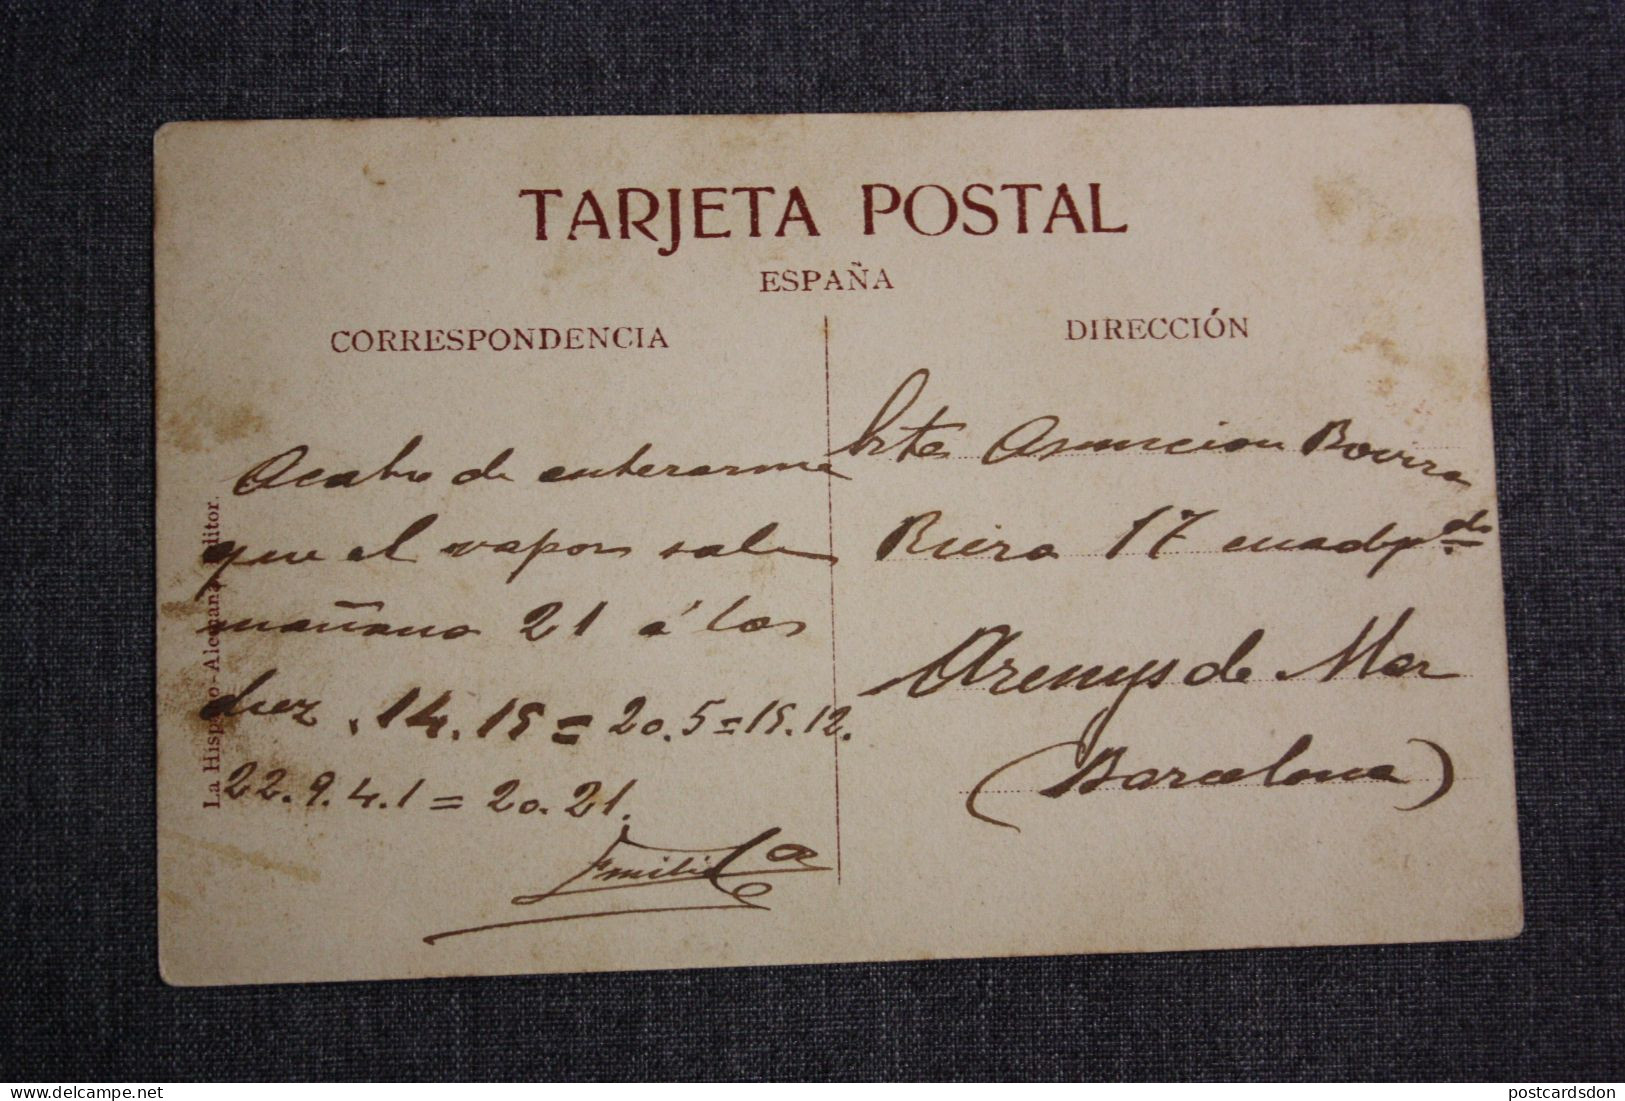 TARJETA POSTAL
ESPAÑA
CORRESPONDENCIA
Acabo de enterarme
que el vapor sale
mañana 21 á las
diez . 14.15 = 20.5 = 15.12.
22.9.4.1 = 20.21.
Emilio
La Hispano-Alemana, Editor.
DIRECCIÓN
Srta Asuncion Rovira
Riera 17 cuadpdo
Arenys de Mar
(Barcelona)
delcampe.net
postcardsdon